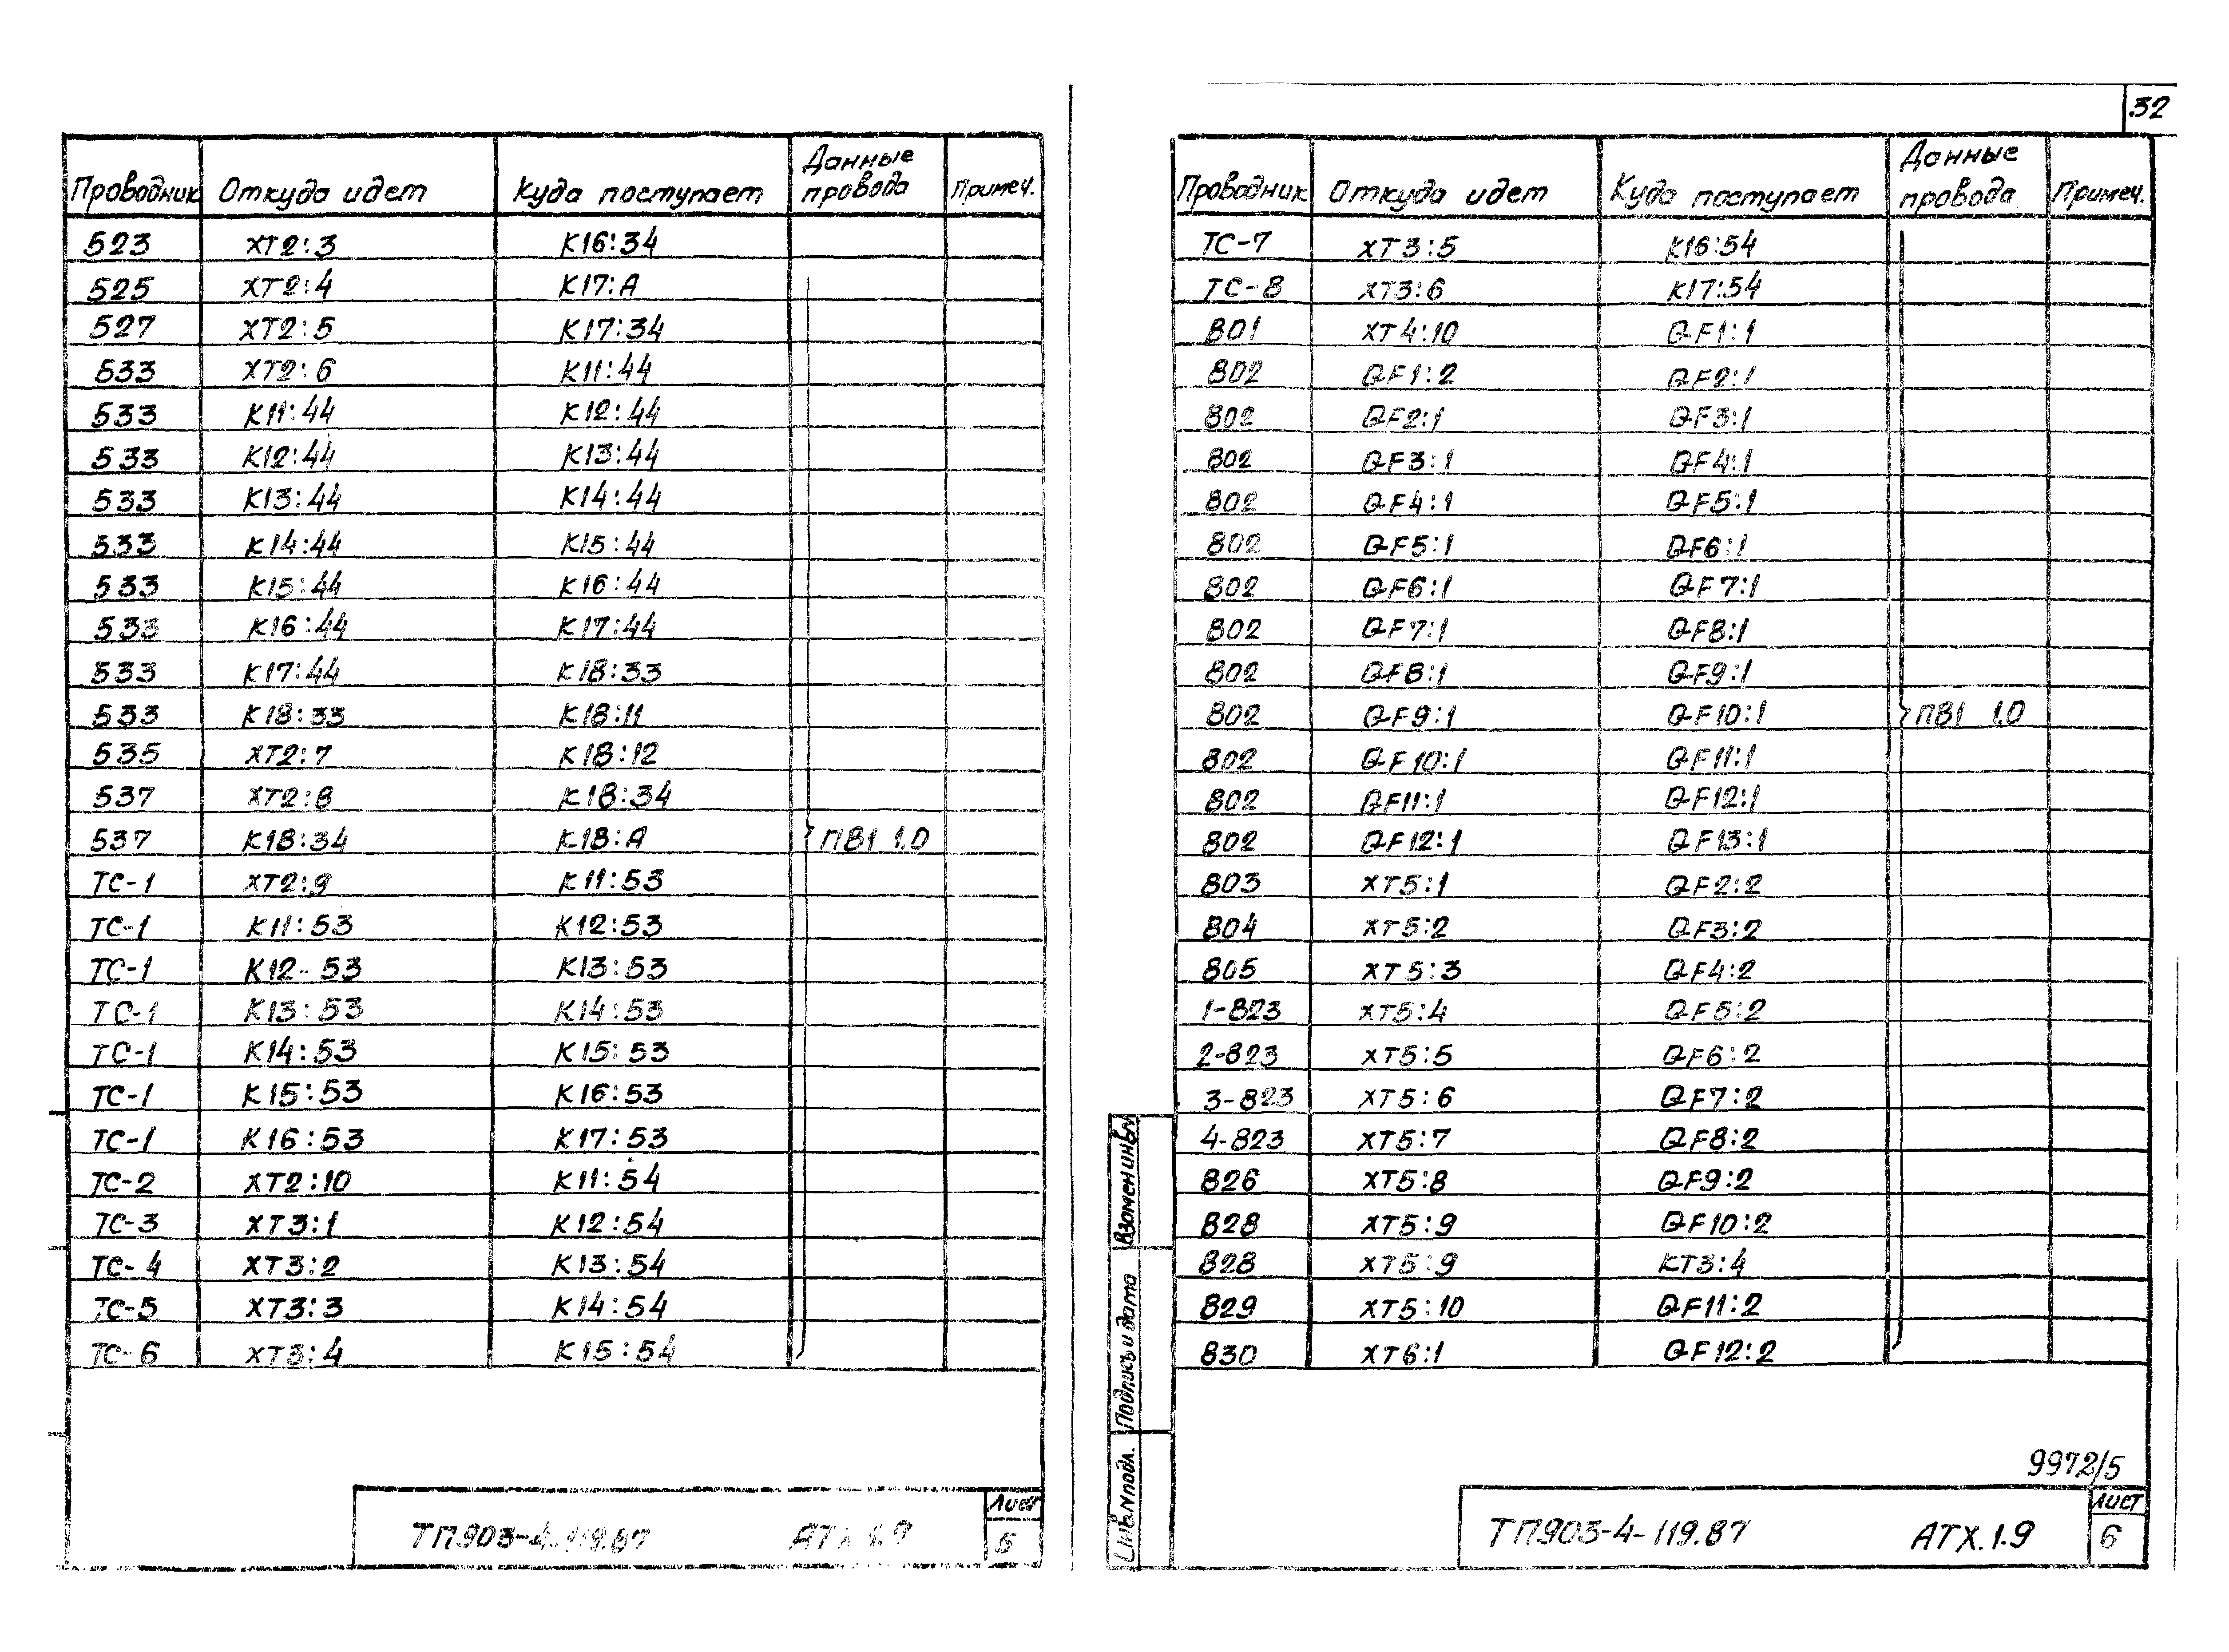 32
Проводник Откуда идет Куда поступает Данные провода Примеч.
523 XT2:3 К16:34
525 XT2:4 К17:А
527 XT2:5 К17:34
533 XT2:6 К11:44
533 К11:44 К12:44
533 К12:44 К13:44
533 К13:44 К14:44
533 К14:44 К15:44
533 К15:44 К16:44
533 К16:44 К17:44
533 К17:44 К18:33
533 К18:33 К18:11
535 XT2:7 К18:12
537 XT2:8 К18:34
537 К18:34 К18:А ПВ1 1.0
ТС-1 XT2:9 К11:53
ТС-1 К11:53 К12:53
ТС-1 К12-53 К13:53
ТС-1 К13:53 К14:53
ТС-1 К14:53 К15:53
ТС-1 К15:53 К16:53
ТС-1 К16:53 К17:53
ТС-2 XT2:10 К11:54
ТС-3 XT3:1 К12:54
ТС-4 XT3:2 К13:54
ТС-5 XT3:3 К14:54
ТС-6 XT3:4 К15:54
ТП903-4-119.87 АТХ 1.9
Лист
5
Проводник Откуда идет Куда поступает Данные провода Примеч.
ТС-7 XT3:5 К16:54
ТС-8 XT3:6 К17:54
801 XT4:10 QF1:1
802 QF1:2 QF2:1
802 QF2:1 QF3:1
802 QF3:1 QF4:1
802 QF4:1 QF5:1
802 QF5:1 QF6:1
802 QF6:1 QF7:1
802 QF7:1 QF8:1
802 QF8:1 QF9:1
802 QF9:1 QF10:1 ПВ1 1.0
802 QF10:1 QF11:1
802 QF11:1 QF12:1
802 QF12:1 QF13:1
803 XT5:1 QF2:2
804 XT5:2 QF3:2
805 XT5:3 QF4:2
1-823 XT5:4 QF5:2
2-823 XT5:5 QF6:2
3-823 XT5:6 QF7:2
4-823 XT5:7 QF8:2
826 XT5:8 QF9:2
828 XT5:9 QF10:2
828 XT5:9 КТ3:4
829 XT5:10 QF11:2
830 XT6:1 QF12:2
Взамен инв№
Подпись и дата
Инв.№подл.
9972/5
ТП903-4-119.87 АТХ.1.9
Лист
6